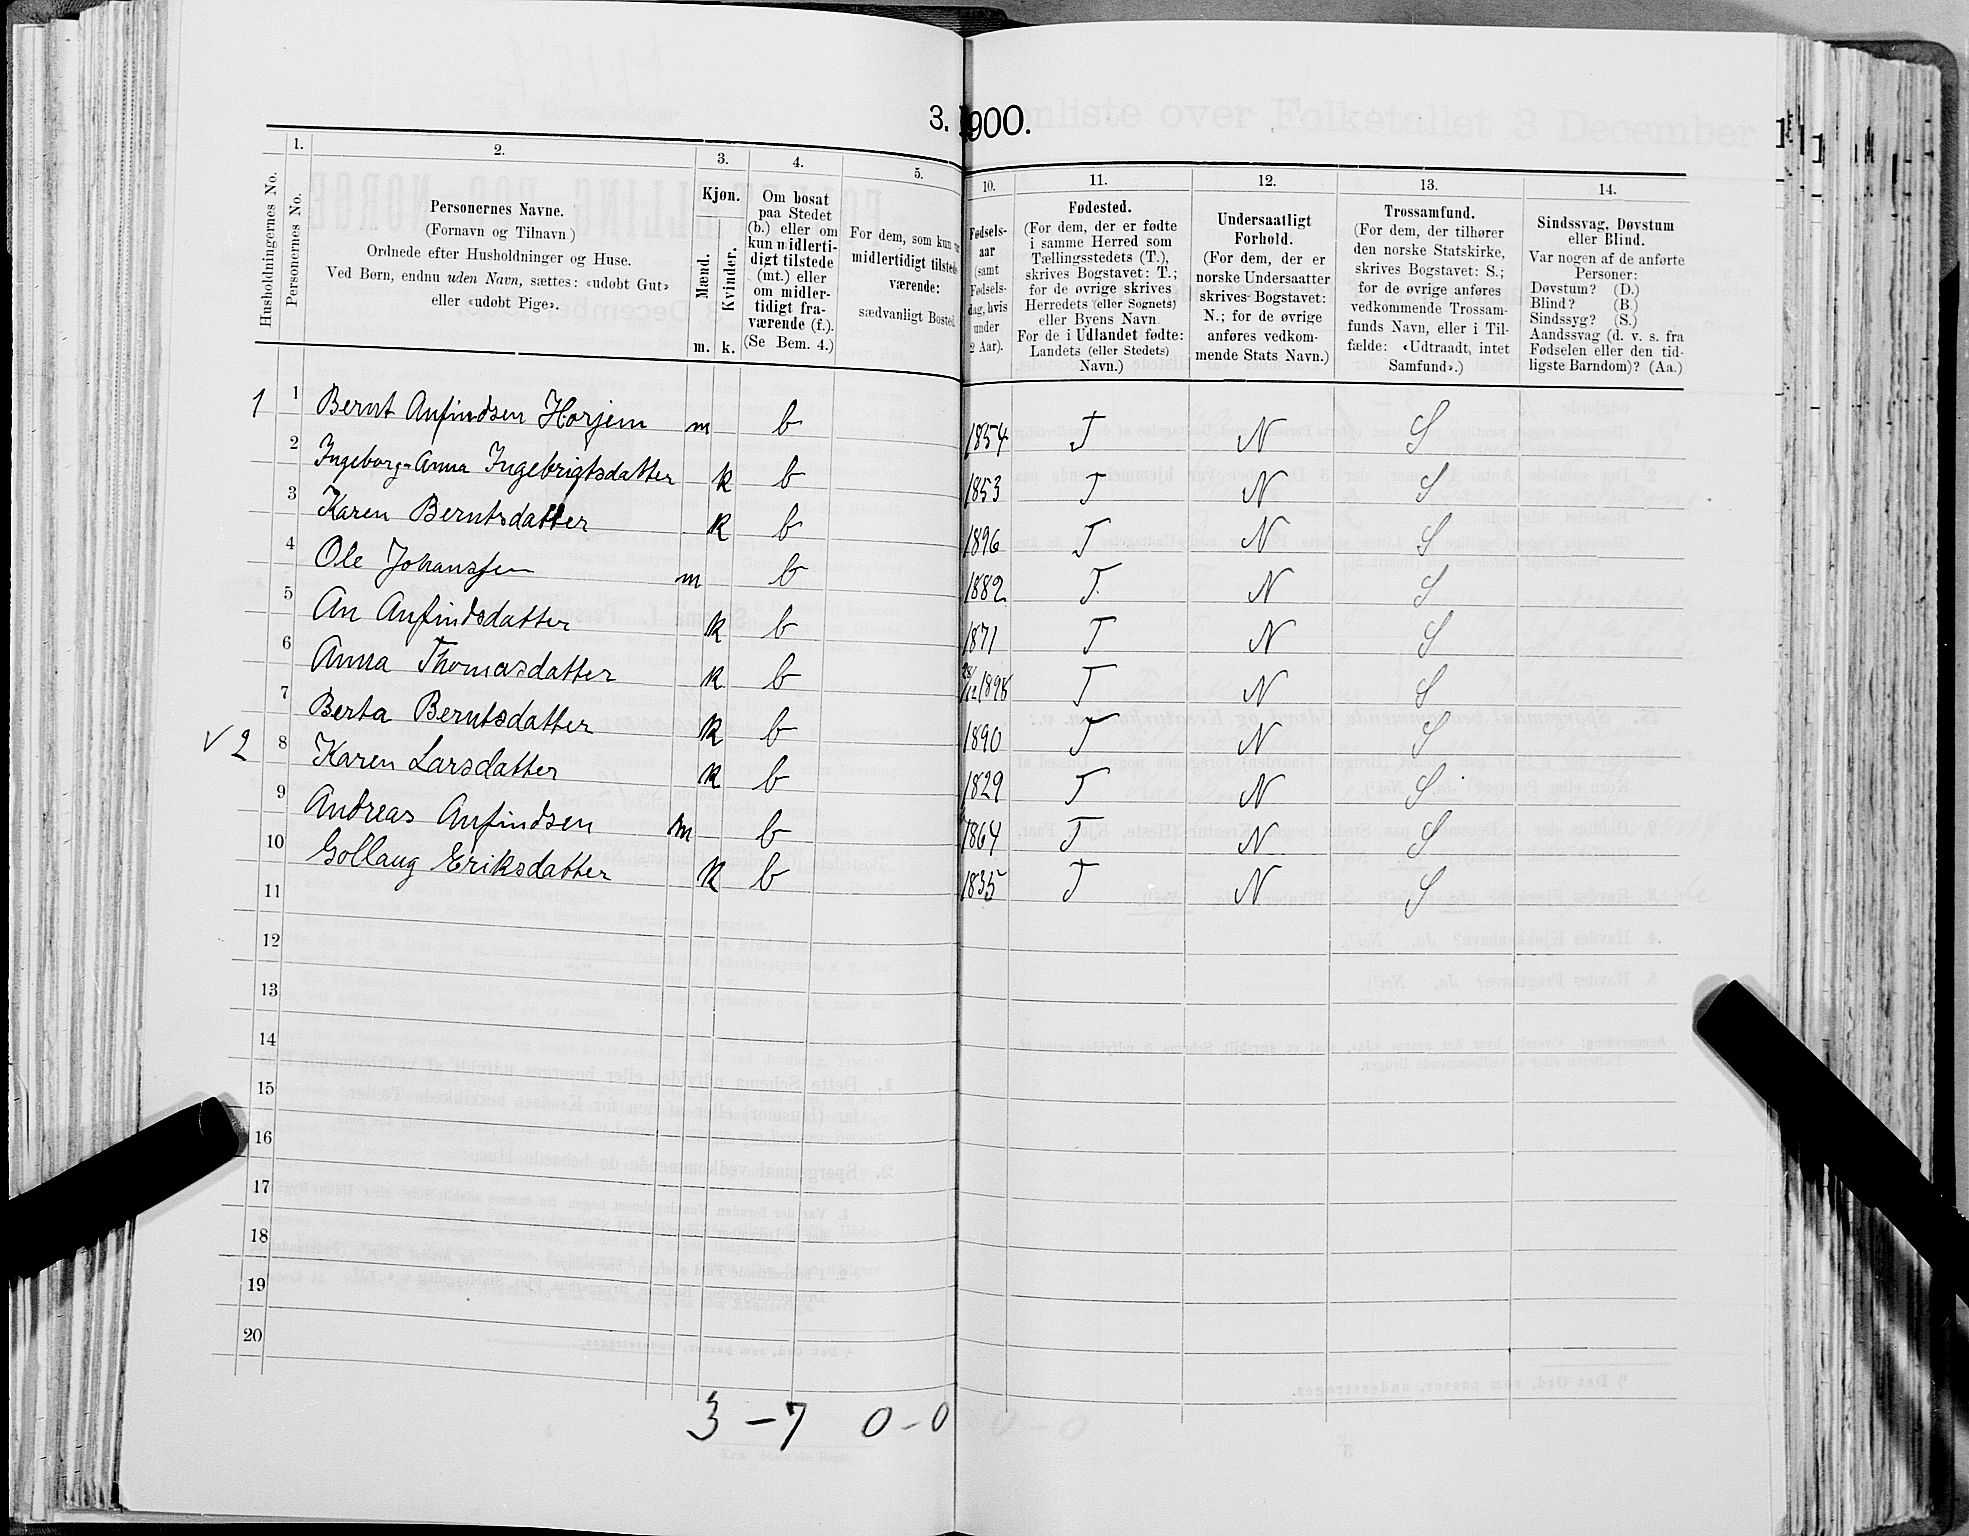 3. 1900.
1.
2.
3.
4.
5.
10.
11.
12.
13.
14.
Husholdningernes No.
Personernes No.
Personernes Navne.
(Fornavn og Tilnavn.)
Ordnede efter Husholdninger og Huse.
Ved Børn, endnu uden Navn, sættes: «udøbt Gut»
eller «udøbt Pige».
Kjøn.
Mænd.
Kvinder.
m. k.
Om bosat
paa Stedet
(b.) eller om
kun midlerti-
digt tilstede
(mt.) eller
om midler-
tidigt fra-
værende (f.).
(Se Bem. 4.)
For dem, som kun
midlertidigt tilstede
værende:
sædvanligt Bosted.
Fødsels-
aar
(samt
Fødsels-
dag, hvis
under
2 Aar).
Fødested.
(For dem, der er fødte
i samme Herred som
Tællingsstedets (T.),
skrives Bogstavet: T.;
for de øvrige skrives
Herredets (eller Sognets)
eller Byens Navn.
For de i Udlandet fødte:
Landets (eller Stedets)
Navn.)
Undersaatligt
Forhold.
(For dem, der er
norske Undersaatter
skrives Bogstavet:
N.; for de øvrige
anføres vedkom-
mende Stats Navn.)
Trossamfund.
(For dem, der tilhører
den norske Statskirke,
skrives Bogstavet: S.;
for de øvrige anføres
vedkommende Trossam-
funds Navn, eller i Til-
fælde: «Udtraadt, intet
Samfund».)
Sindssvag, Døvstum
eller Blind.
Var nogen af de anførte
Personer:
Døvstum? (D.)
Blind? (B.)
Sindssyg? (S.)
Aandssvag (d. v. s. fra
Fødselen eller den tid-
ligste Barndom)? (Aa.)
1 1 Bernt Anfindsen Horjem m b 1854 T N S
2 Ingeborg-Anna Ingebrigtsdatter k b 1853 T N S
3 Karen Berntsdatter k b 1896 T N S
4 Ole Johanssen m b 1882 T. N S
5 An Anfindsdatter k b 1871 T N S
6 Anna Thomasdatter k b T N S
7 Berta Berntsdatter k b 1890 T N S
√ 2 8 Karen Larsdatter k b 1829 T N S
9 Andreas Anfindsen m b 1864 T N S
10 Gollaug Eriksdatter k b 1835 T N S
11
12
13
14
15
16
17
18
19
20
3 - 7 0 - 0